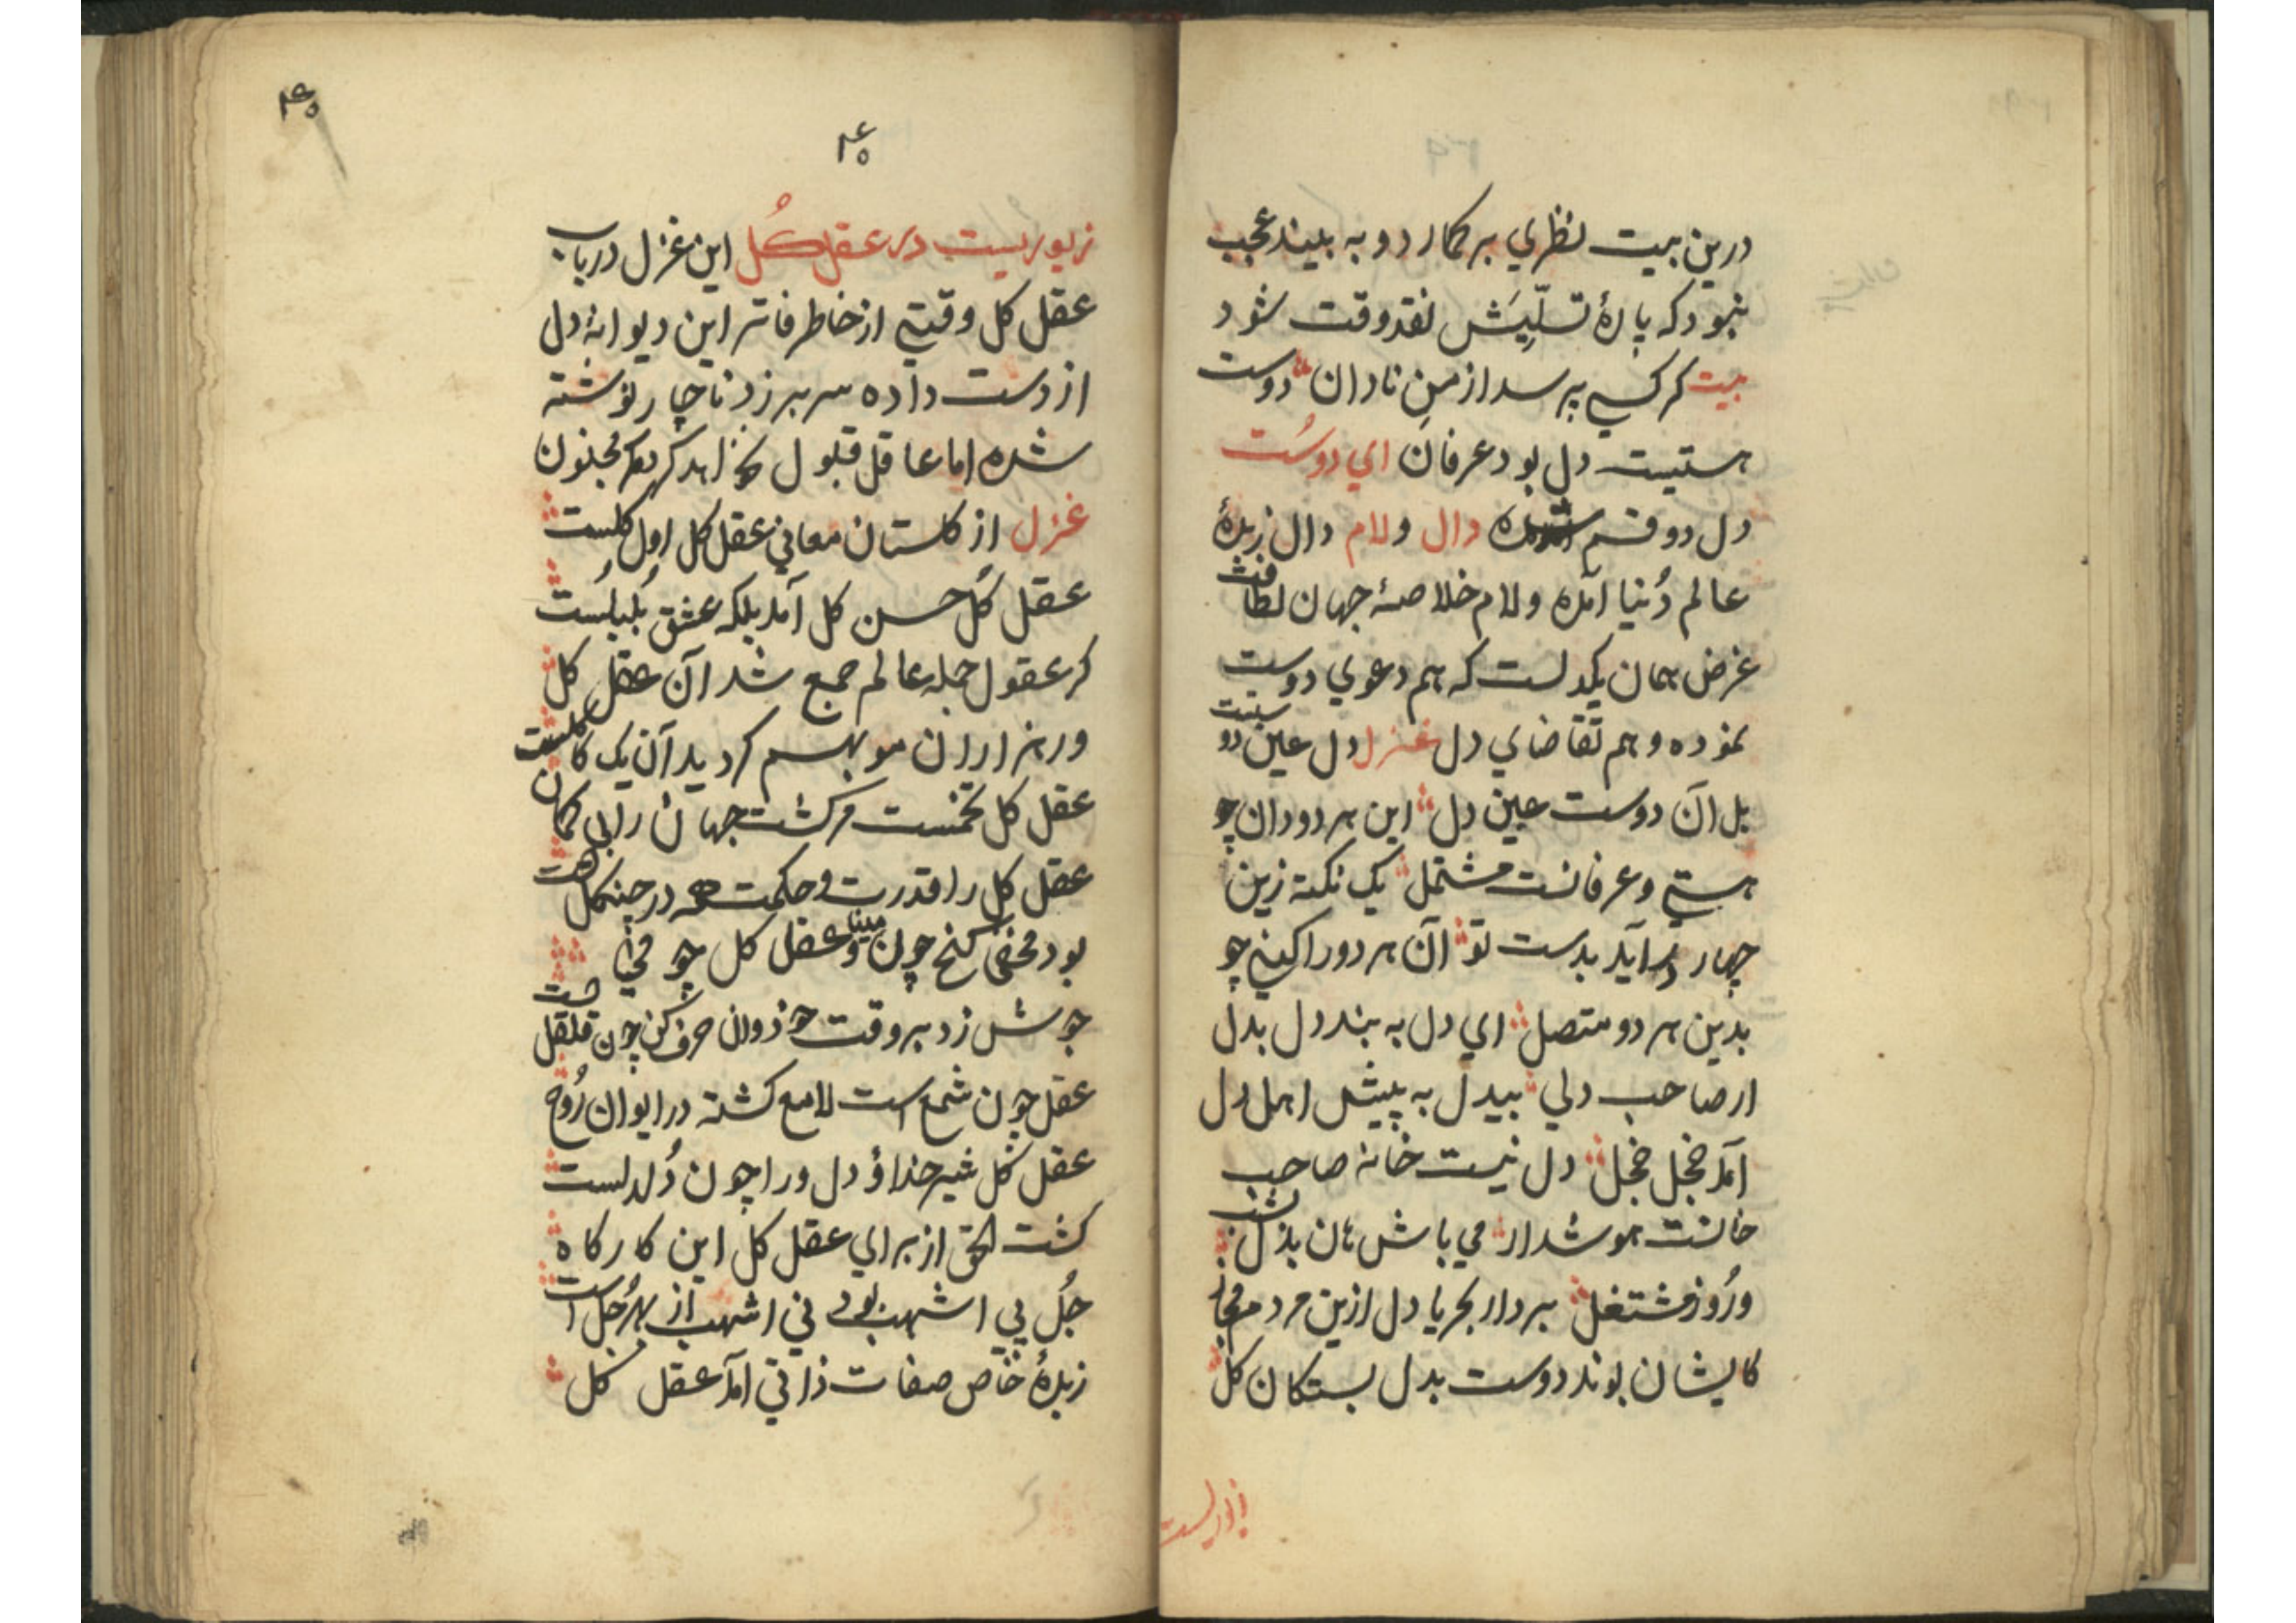 درین بیت نظري برکمارد و به بیند عجب
نبود که پارهٔ تسلّیَش نقد وقت شود
بیت کر کسي پرسد از من نادان دوست
هستیست دل بود عرفان اي دوست
دل دو قسم شده دال و لام دال زبدهٔ
عالم دُنیا آمده و لام خلاصهٔ جهان لطافت
غرض همان یکدلست که هم دعوي دوست
نموده و هم تقاضاي دل غزل دل عین دوستیت
بل آن دوست عین دل این هر دو دان چو
هستي و عرفانست مشتمل یک نکته زین
چهار در آید بدست تو آن هر دو را کني چو
بدین هر دو متصل اي دل به بند دل بدل
ار صاحب دلي بیدل به پیش اهل دل
آمد خجل خجل دل نیست خانه صاحب
خانست هوشدار مي باش هان بدل شب
و رُوز مشتغل بردار بحریا دل ازین مردم مجاز
کایشان بوند دوست بدل بستکان کل
زیوریست
۴۰
۴۰
زیوریست در عقل کُل این غزل دریاب
عقل کل وقتي از خاطر فاتر این دیوانهٔ دل
از دست داده سر بر زد ناچار نوشته
شده اما عاقل قبول نخواهد کرد مکر مجنون
غزل از کلستان معاني عقل کل اول کلست
عقل کُل حسن کل آمد بلکه عشق بُلبلُست
کر عقول جمله عالم جمع شد آن عقل کل
ور هزاران مو بهم کردید آن یک کاکلست
عقل کل تخمست مر کشت جهان را بي کمان
عقل کل را قدرت و حکمت همه در چنکلست
بود مخفي کنج چون مینا و عقل کل چو مي
جوش زد بر وقت خود زوان حرف کن چون قلقلست
عقل چون شمع است لامع کشته در ایوان رُوح
عقل کل شیر خدا و دل ورا چون دُلدلست
کشت الحق از براي عقل کل این کارکاه
جُل پي اشهب بود ني اشهب از بهر جُل است
زبدهٔ خاص صفات ذاتي آمد عقل کل